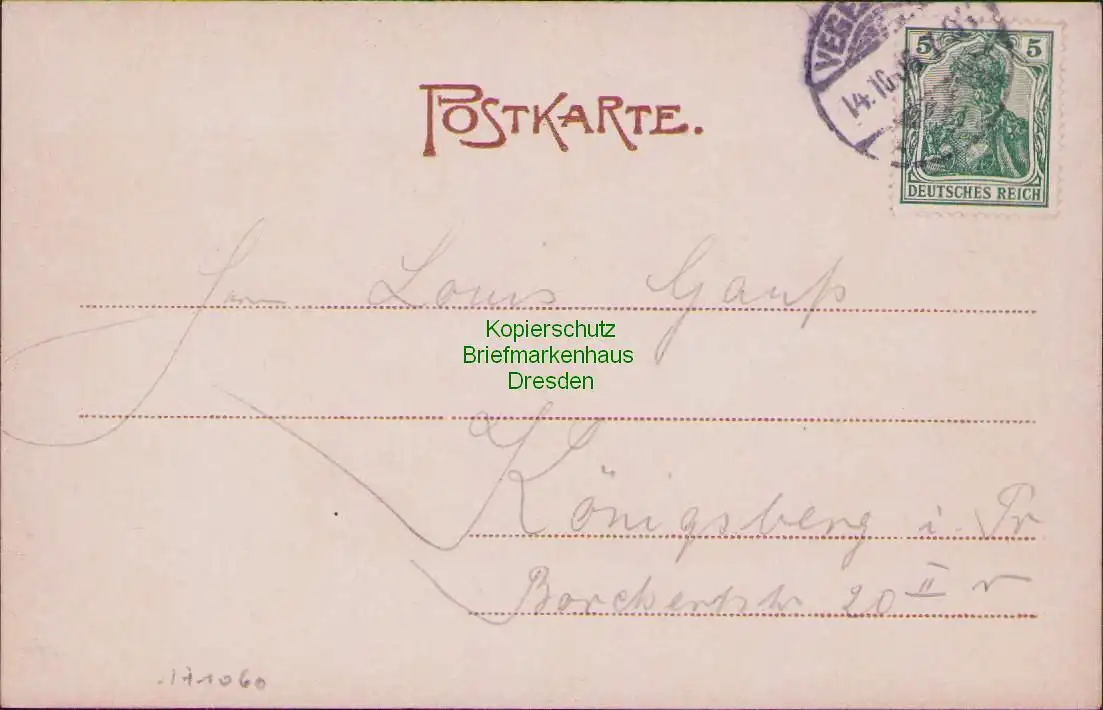 VEGE
14.10.0
5 5
DEUTSCHES REICH
POSTKARTE.
Herrn Louis Gauß
Kopierschutz
Briefmarkenhaus
Dresden
Königsberg i. Pr
Borchertstr 20 II r
171060